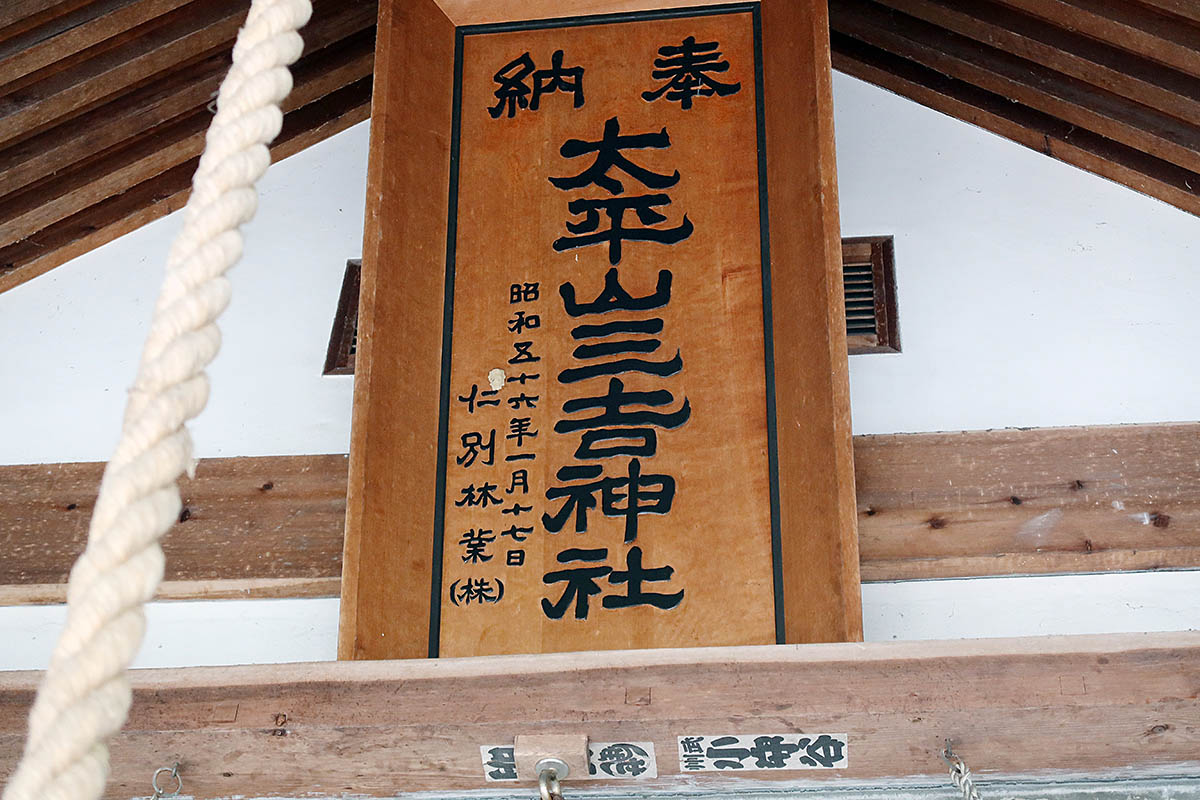 奉納
太平山三吉神社
昭和五十六年一月十七日
仁別林業(株)
武州
小中谷